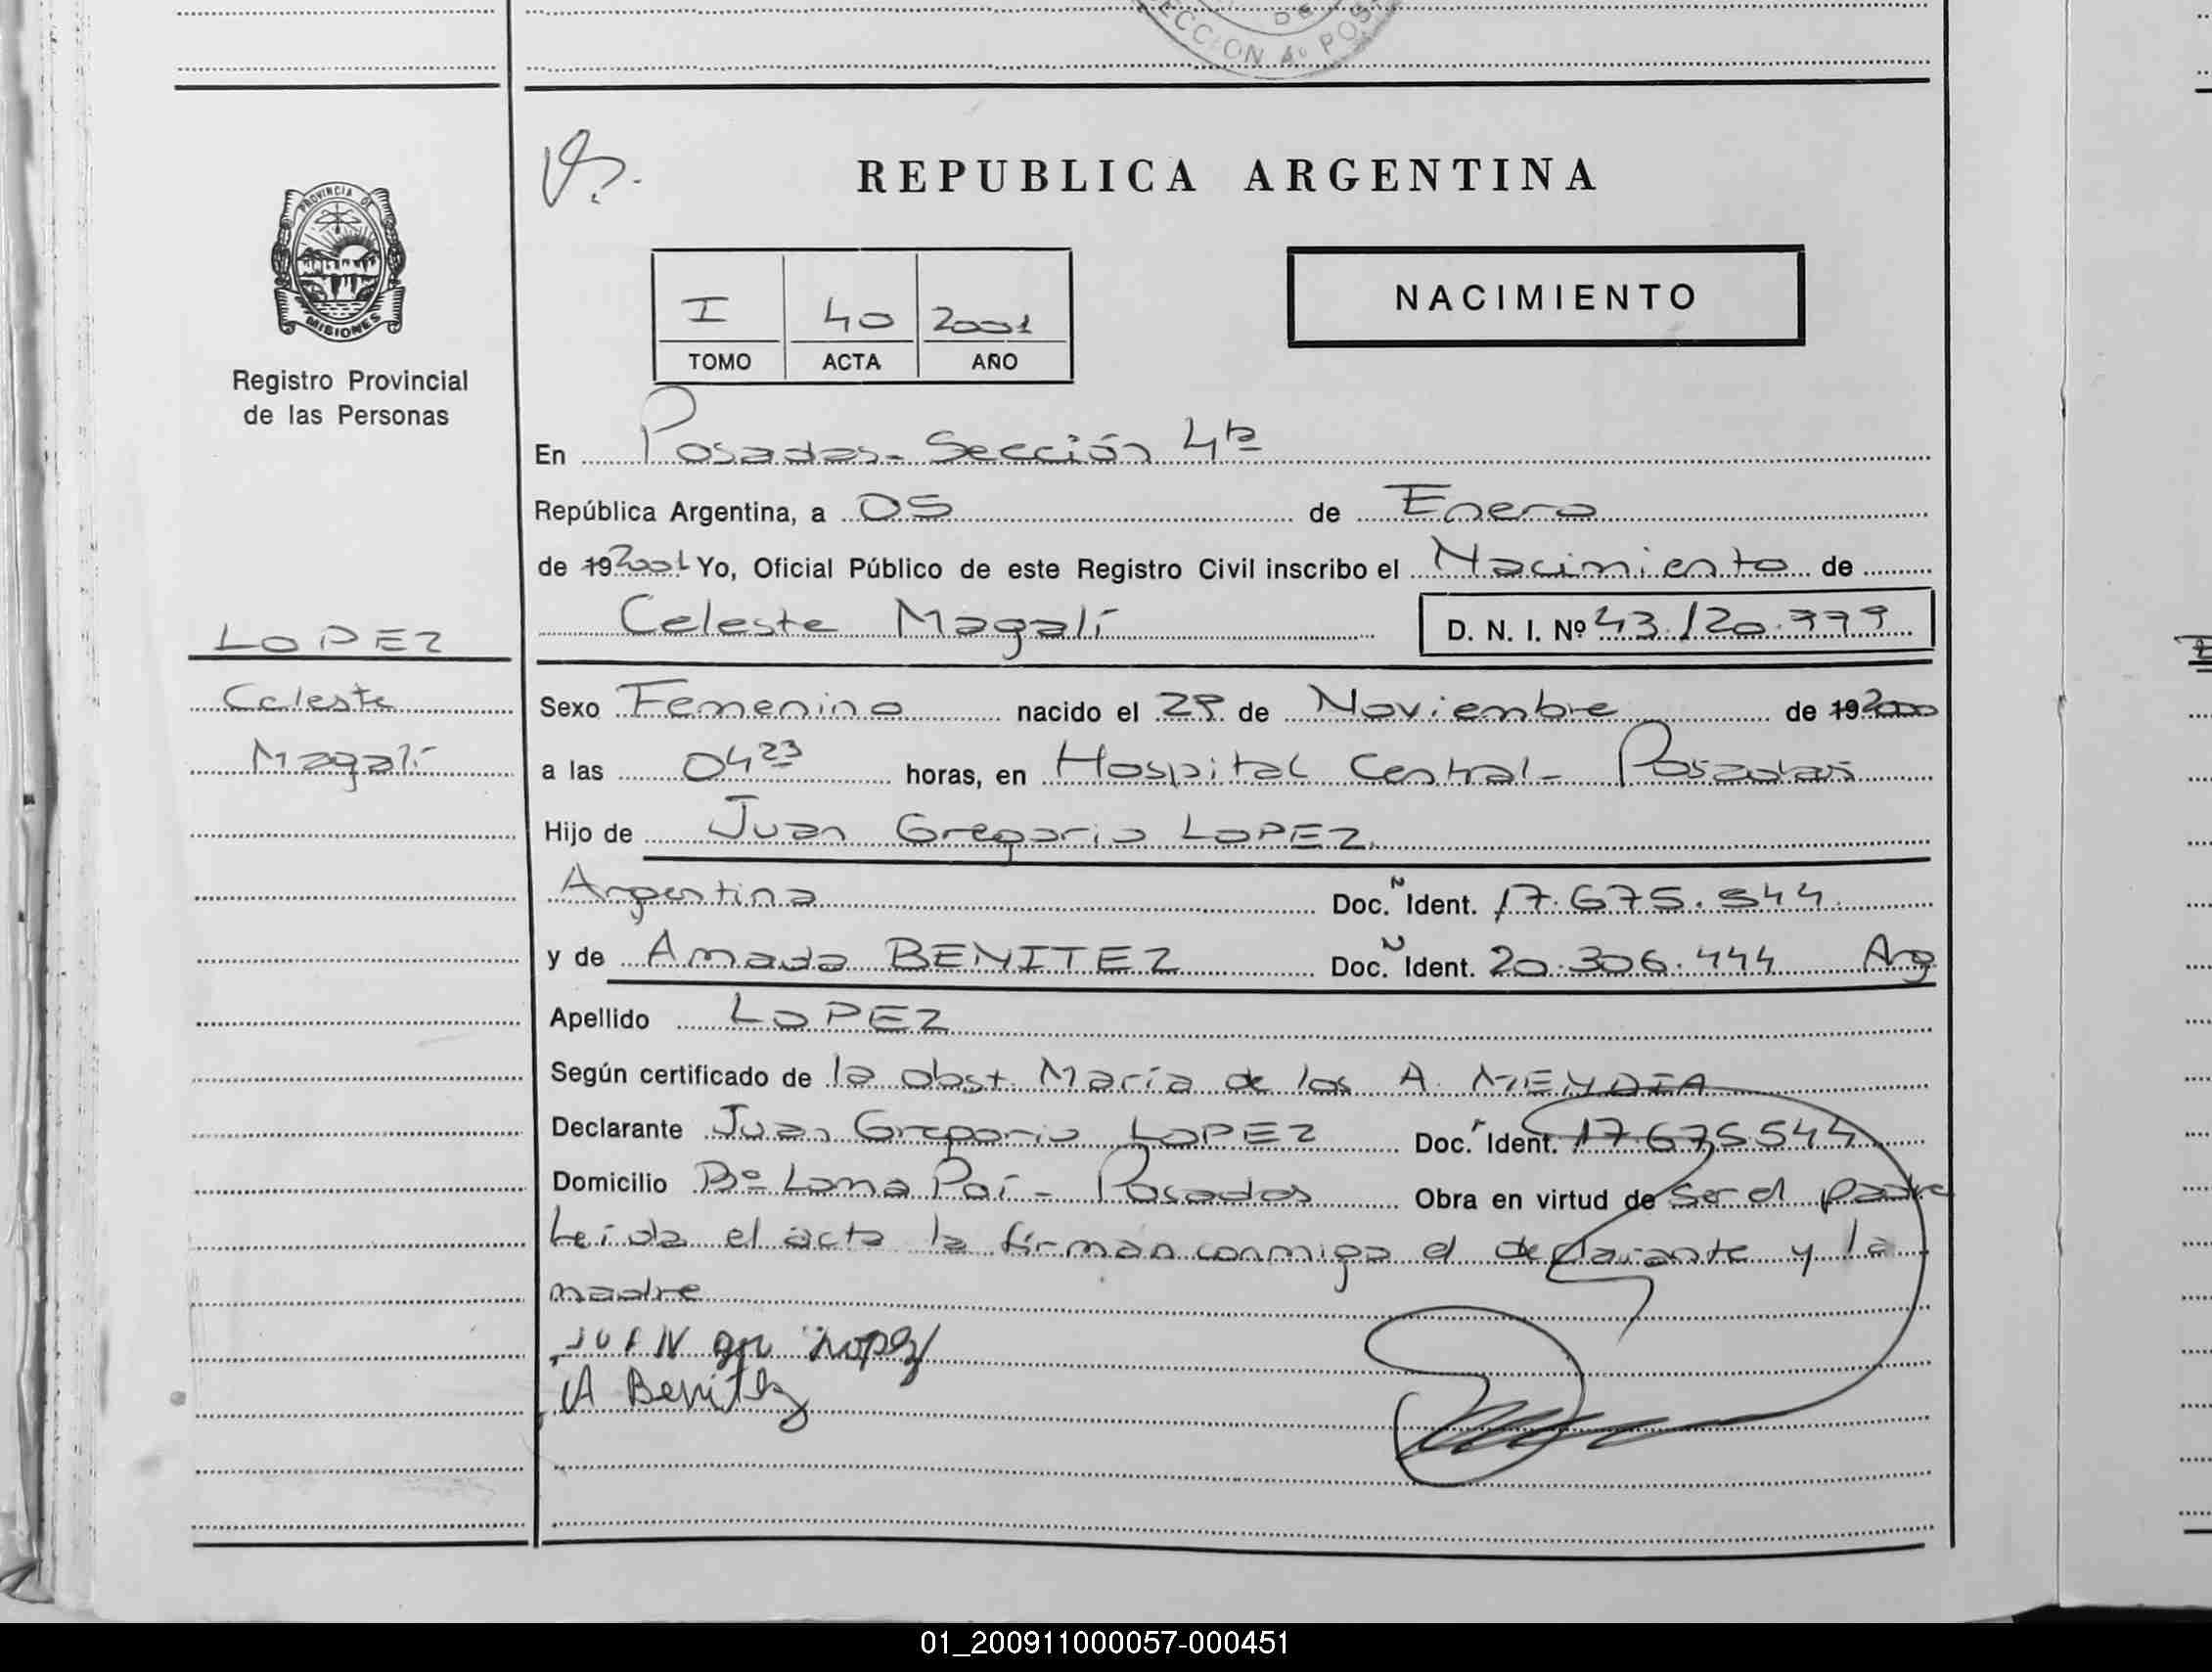 DE
SECCION 4º POS
REPUBLICA ARGENTINA
PROVINCIA DE
MISIONES
Registro Provincial
de las Personas
I 40 2001
TOMO ACTA AÑO
NACIMIENTO
En Posadas - Sección 4ta
República Argentina, a 05 de Enero
de 19 2001 Yo, Oficial Público de este Registro Civil inscribo el Nacimiento de
Celeste Magalí D. N. I. Nº 43.120.779
LOPEZ
Celeste
Magalí
Sexo Femenino nacido el 29 de Noviembre de 19 2000
a las 04 23 horas, en Hospital Central - Posadas
Hijo de Juan Gregorio LOPEZ
Argentina Doc. N Ident. 17.675.544
y de Amada BENITEZ Doc. N Ident. 20.306.444 Arg
Apellido LOPEZ
Según certificado de la obst. María de los A. MENDIA
Declarante Juan Gregorio LOPEZ Doc. Ident. 17.675544
Domicilio Bº Loma Poí - Posadas Obra en virtud de ser el padre
Leída el acta la firman conmigo el declarante y la
madre
JUAN gre Lopez
A Benitez
01_200911000057-000451